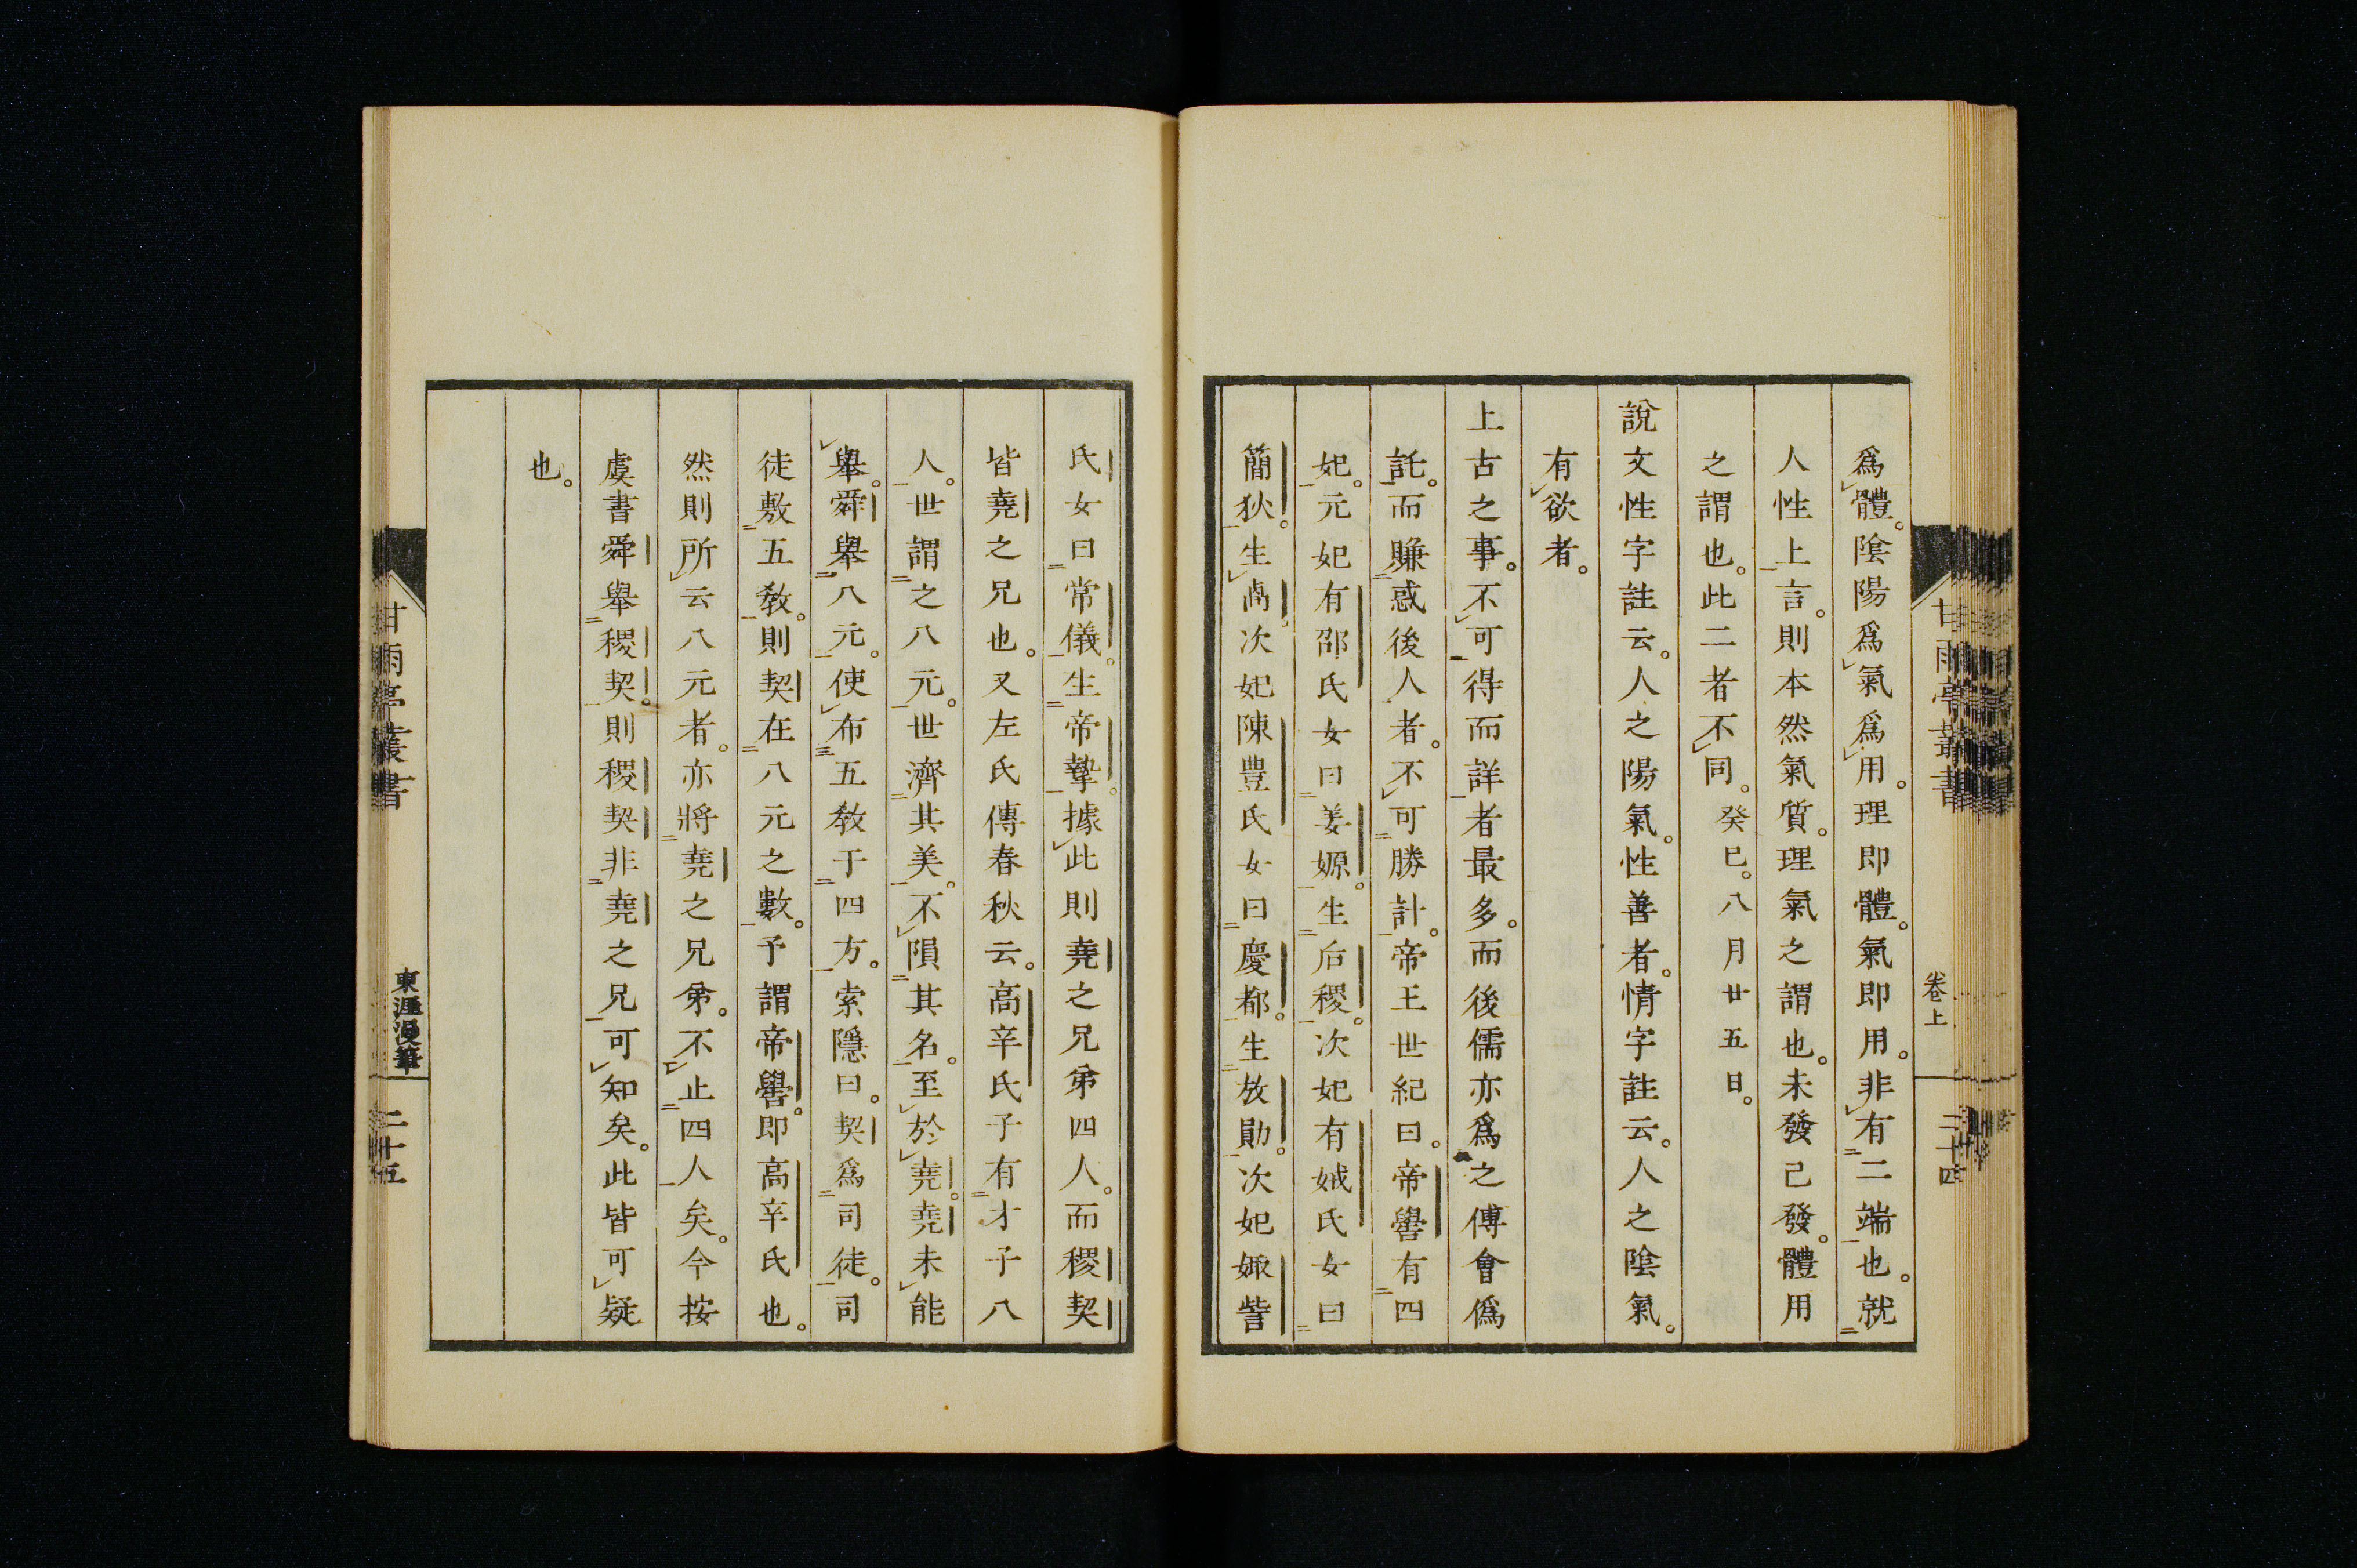 爲體。陰陽爲氣爲用。理即體。氣即用。非有二端也。就
人性上言。則本然氣質。理氣之謂也。未發已發。體用
之謂也。此二者不同。癸巳。八月廿五日。
說文性字註云。人之陽氣。性善者。情字註云。人之陰氣。
有欲者。
上古之事。不可得而詳者最多。而後儒亦爲之傅會僞
託。而賺惑後人者。不可勝計。帝王世紀曰。帝嚳有四
妃。元妃有邰氏女曰姜嫄。生后稷。次妃有娀氏女曰
簡狄。生卨。次妃陳豊氏女曰慶都。生放勛。次妃娵訾
甘雨亭叢書
卷上
二十四
氏女曰常儀。生帝摯。據此則堯之兄弟四人。而稷契
皆堯之兄也。又左氏傳春秋云。高辛氏子有才子八
人。世謂之八元。世濟其美。不隕其名。至於堯。堯未能
舉。舜舉八元。使布五教于四方。索隱曰。契爲司徒。司
徒敷五教。則契在八元之數。予謂帝嚳。即高辛氏也。
然則所云八元者。亦將堯之兄弟。不止四人矣。今按
虞書舜舉稷契。則稷契非堯之兄可知矣。此皆可疑
也。
甘雨亭叢書
東涯漫筆
二十五